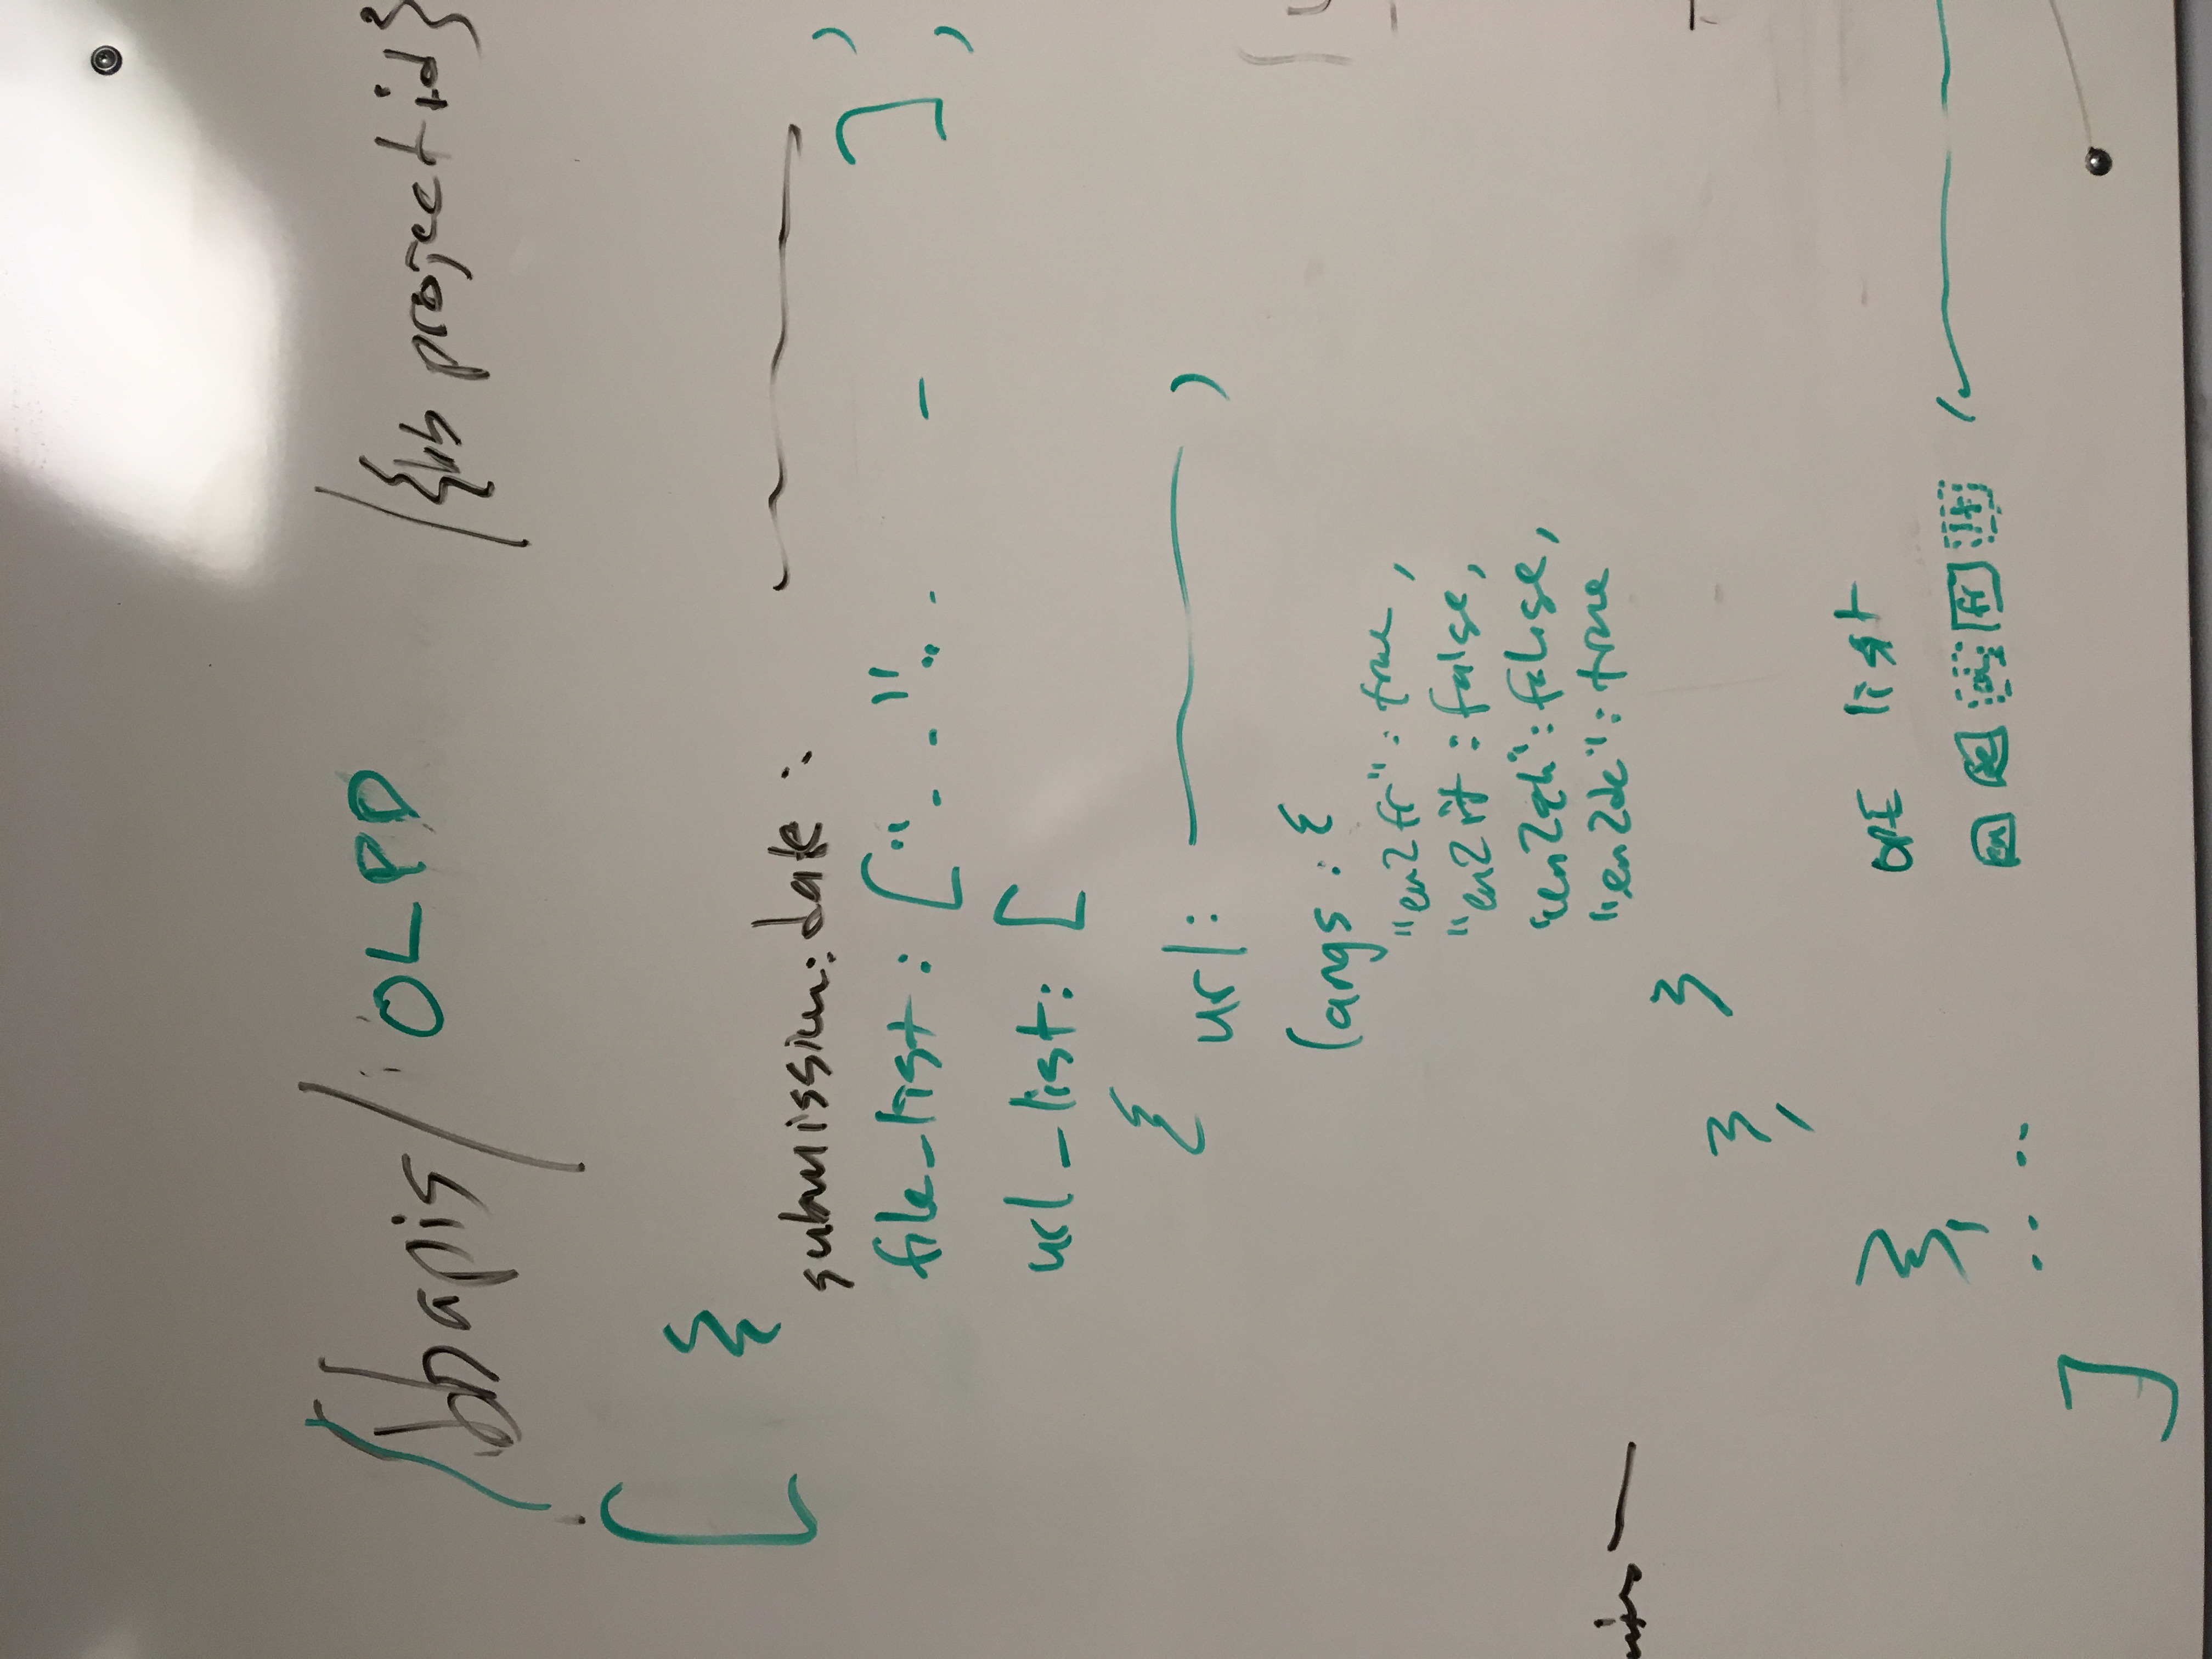 /bapis/OLPD /{sub project id}
[
{
submission:date:
file_list: [".. - - "... - ],
url_list: [
{
url: ,
langs: {
"en2fr": true,
"en2it: false,
"en2zh": false,
"en2de": true
}
},
list
en de fr it
},
....
]